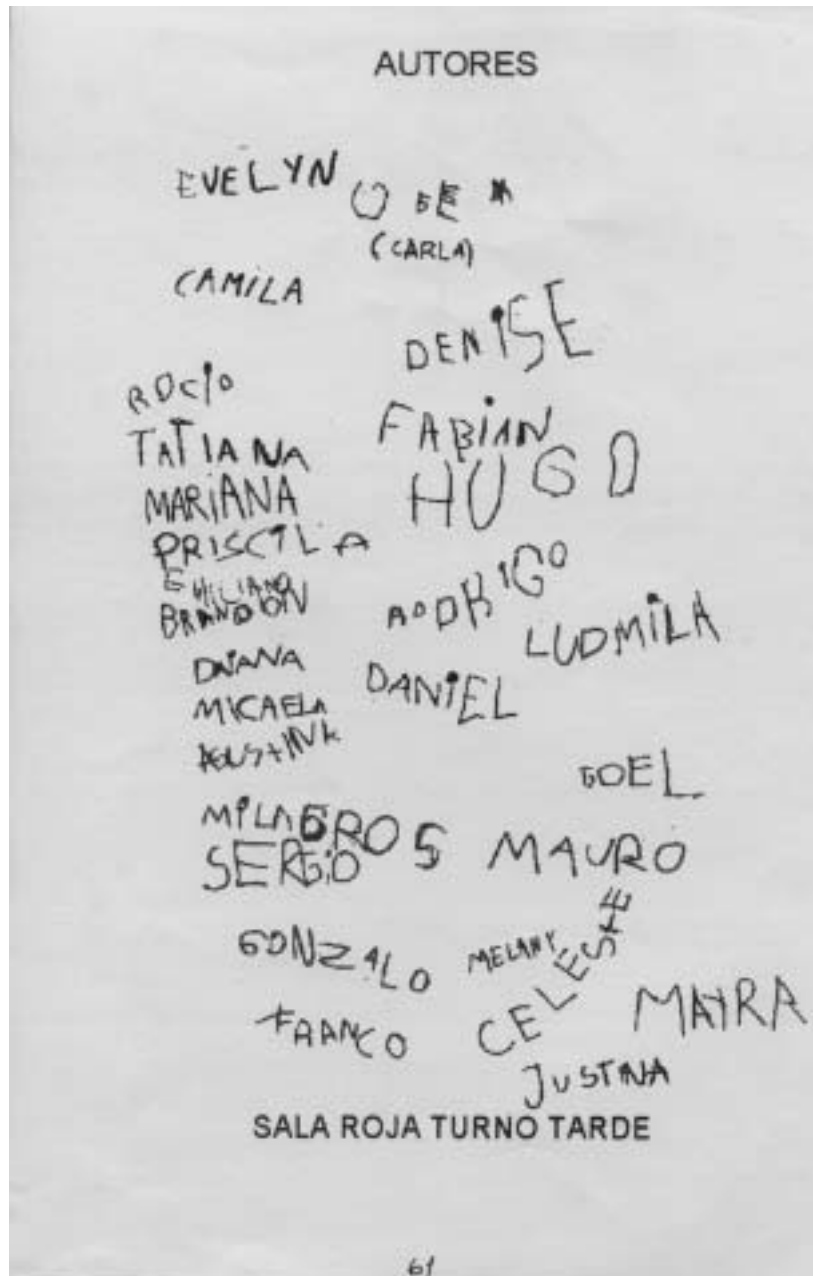 AUTORES
EVELYN
(CARLA)
CAMILA
DENISE
ROCIO
FABIAN
TATIANA
HUGO
MARIANA
PRISCILA
EMILIANO
BRANDON
RODRIGO
LUDMILA
DAIANA
DANIEL
MICAELA
AGUSTINA
GOEL
MILAGROS
SERGIO
MAURO
GONZALO
MELANY
CELESTE
FRANCO
MAYRA
JUSTINA
SALA ROJA TURNO TARDE
61